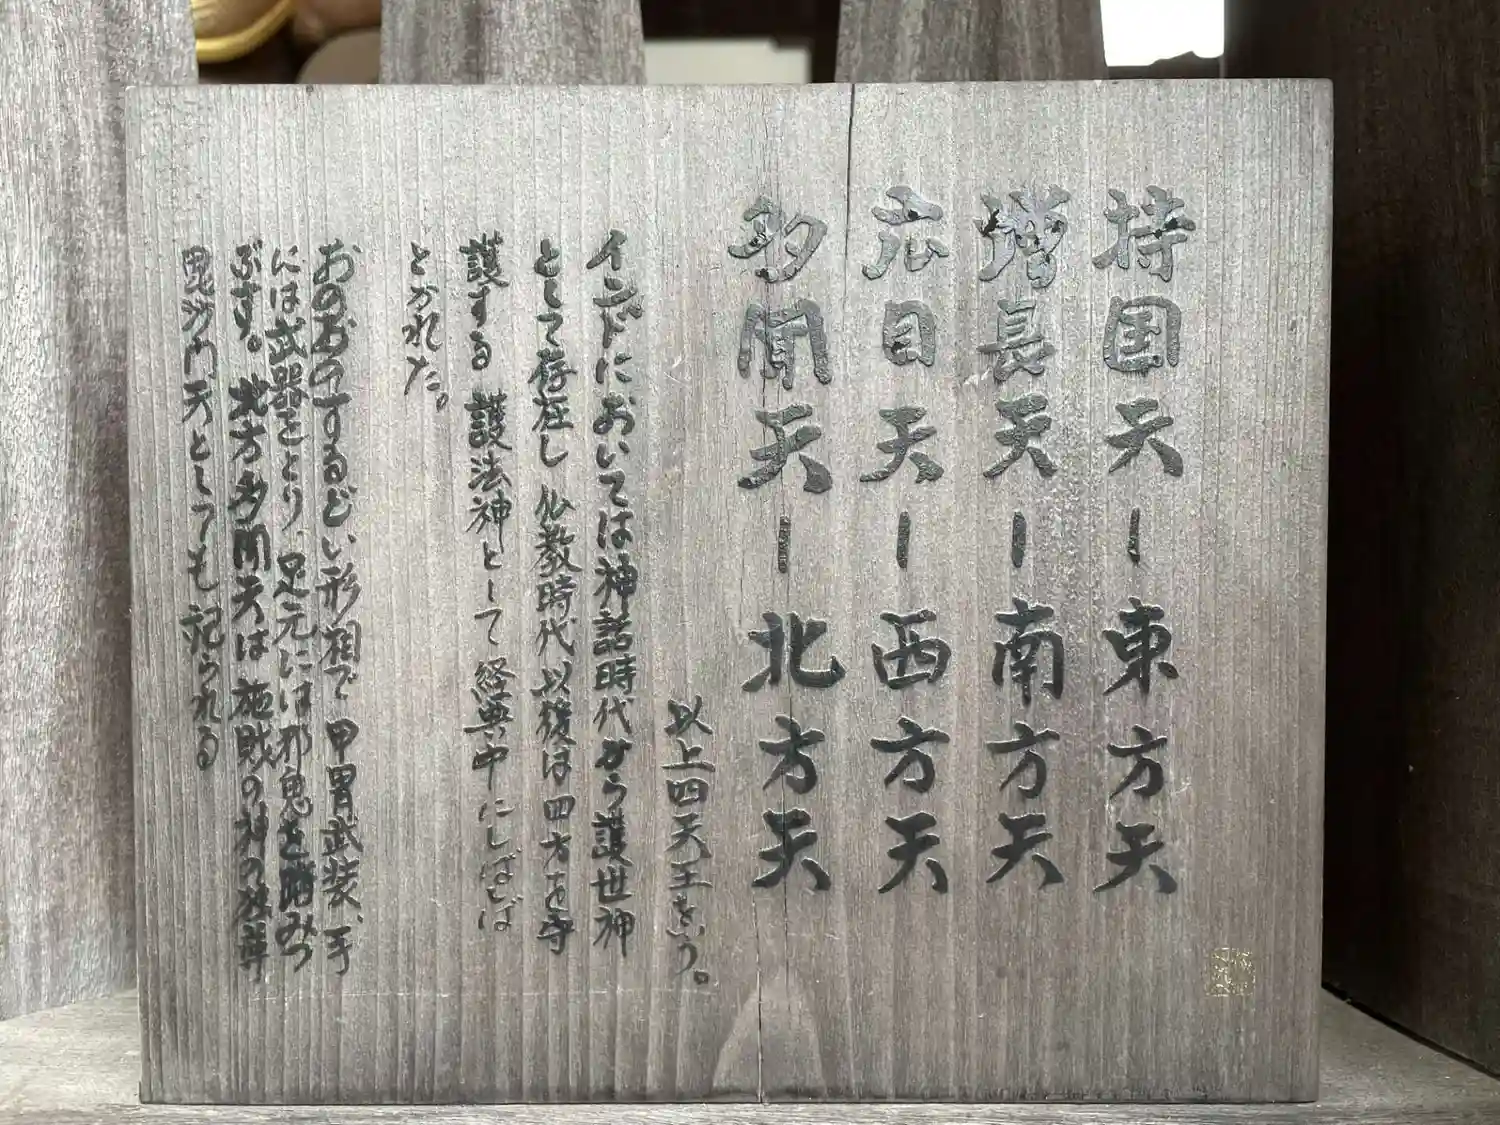 持国天ー東方天
増長天ー南方天
広目天ー西方天
多聞天ー北方天
以上四天王をいう。
インドにおいては神話時代から護世神
として存在し仏教時代以後は四方を守
護する護法神として経典中にしばしば
とかれた。
おのおのするどい形相で甲冑武装、手
には武器をとり足元には邪鬼を踏みつ
ぶす。北方多聞天は施財の神の独尊
毘沙門天としても祀られる